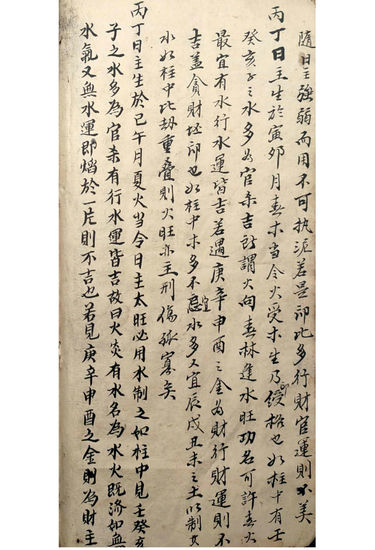 隨日主強弱而用不可执泥若是印比多行財官運則不美
丙丁日主生於寅卯月春木當令火受木生乃綬格也如柱中有壬
癸亥子之水多為官杀吉所謂火向春林逢水旺功名可許春火
最宜有水行水運皆吉若遇庚辛申酉之金為財行財運則不
吉蓋貪財坯印也如柱中木多不忌水多又宜辰戌丑未之土以制其
水如柱中比劫重叠則火旺亦主刑傷孤寡矣
丙丁日主生於巳午月夏火當令日主太旺必用水制之如柱中見壬癸亥
子之水多為官杀有行水運皆吉故曰火炎有水名為水火既濟如無
水氣又無水運即熖於一片則不吉也若見庚辛申酉之金則為財主